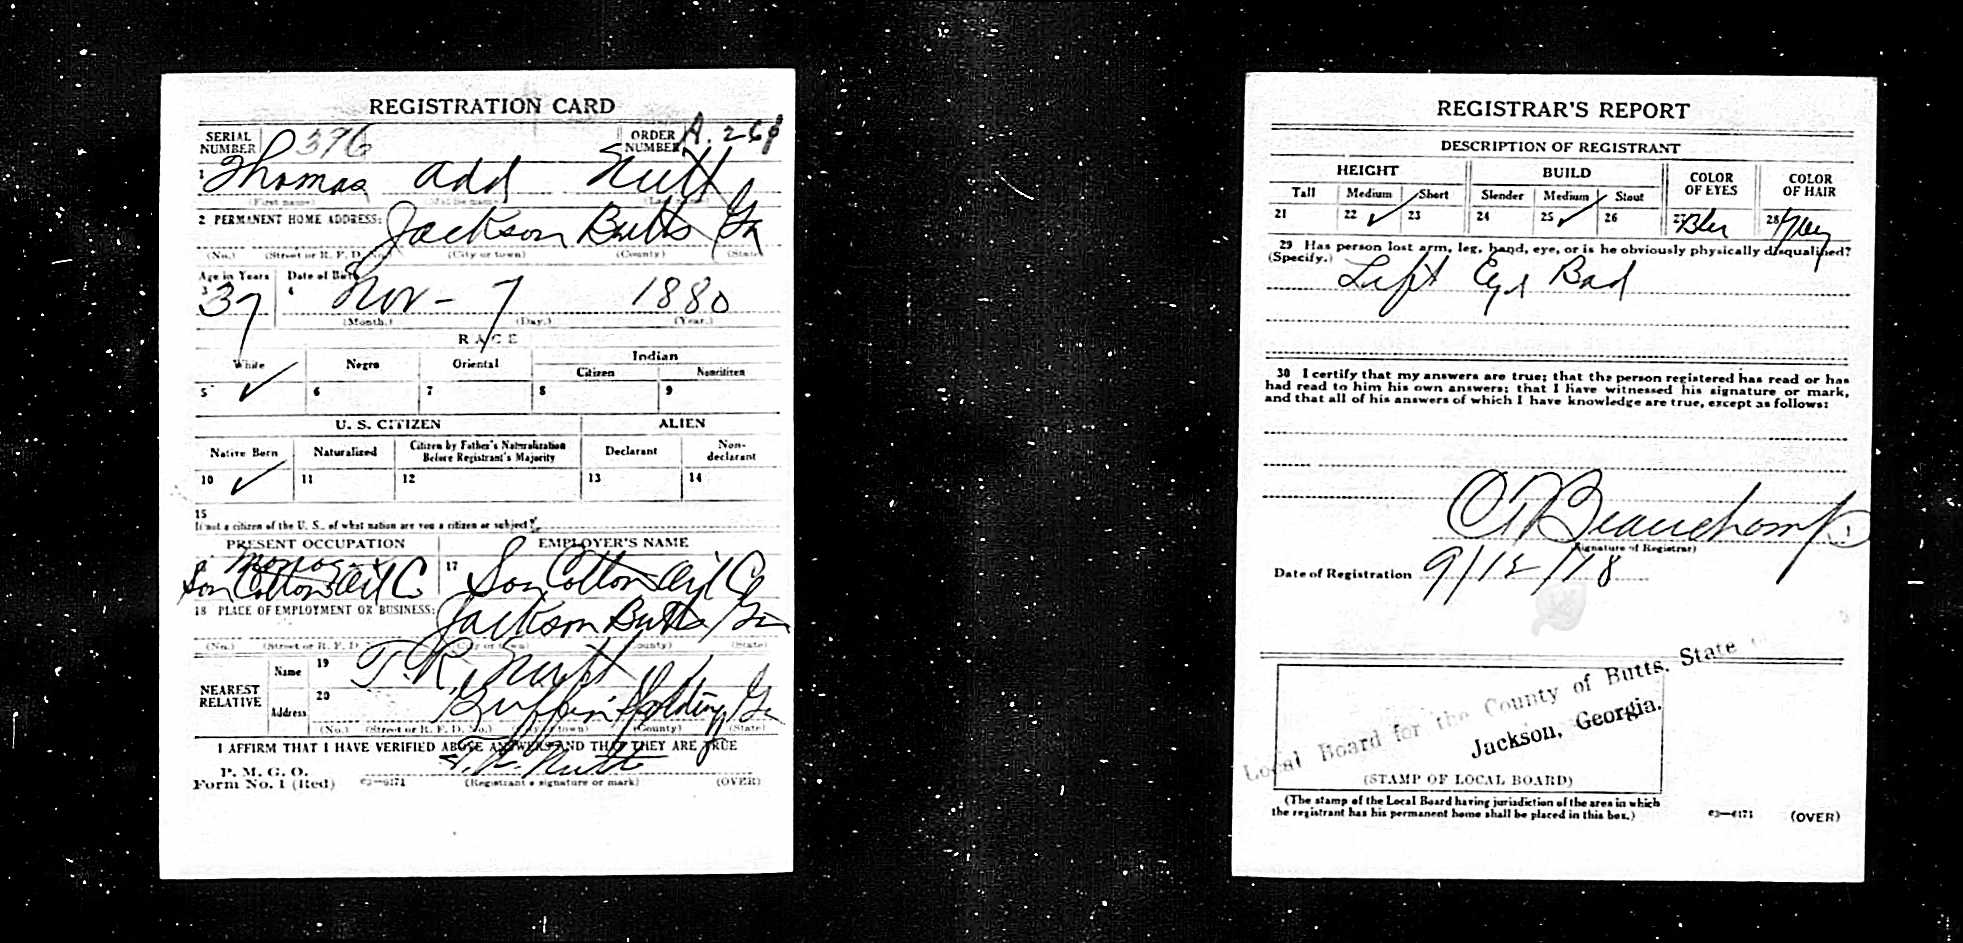 REGISTRATION CARD
SERIAL NUMBER 396 ORDER NUMBER A. 268
1 Thomas Add Nutt
(First name) (Middle name) (Last name)
2 PERMANENT HOME ADDRESS: Jackson Butts Ga
(No.) (Street or R. F. D. No.) (City or town) (County) (State)
Age in Years Date of Birth
3 37 4 Nov - 7 1880
(Month.) (Day.) (Year.)
RACE
White Negro Oriental Indian
Citizen Noncitizen
5 ✓ 6 7 8 9
U. S. CITIZEN ALIEN
Native Born Naturalized Citizen by Father's Naturalization Before Registrant's Majority Declarant Non-declarant
10 ✓ 11 12 13 14
15
If not a citizen of the U. S., of what nation are you a citizen or subject?
PRESENT OCCUPATION EMPLOYER'S NAME
Sou Cotton Oil C 17 Sou Cotton Oil Co
18 PLACE OF EMPLOYMENT OR BUSINESS: Jackson Butts Ga
(No.) (Street or R. F. D. No.) (City or town) (County) (State)
NEAREST RELATIVE
Name 19 T. R. Nutt
Address 20 Griffin Spalding Ga
(No.) (Street or R. F. D. No.) (City or town) (County) (State)
I AFFIRM THAT I HAVE VERIFIED ABOVE ANSWERS AND THAT THEY ARE TRUE
P. M. G. O.
Form No. 1 (Red) 03—6171 (Registrant's signature or mark) (OVER)
REGISTRAR'S REPORT
DESCRIPTION OF REGISTRANT
HEIGHT BUILD COLOR OF EYES COLOR OF HAIR
Tall Medium Short Slender Medium Stout
21 22 ✓ 23 24 25 ✓ 26 27 Blu 28 Gray
29 Has person lost arm, leg, hand, eye, or is he obviously physically disqualified?
(Specify.) Left Eye Bad
30 I certify that my answers are true; that the person registered has read or has
had read to him his own answers; that I have witnessed his signature or mark,
and that all of his answers of which I have knowledge are true, except as follows:
Beauchamp
(Signature of Registrar)
Date of Registration 9/12/18
Local Board for the County of Butts, State
Jackson, Georgia.
(STAMP OF LOCAL BOARD)
(The stamp of the Local Board having jurisdiction of the area in which
the registrant has his permanent home shall be placed in this box.)
03—6171 (OVER)